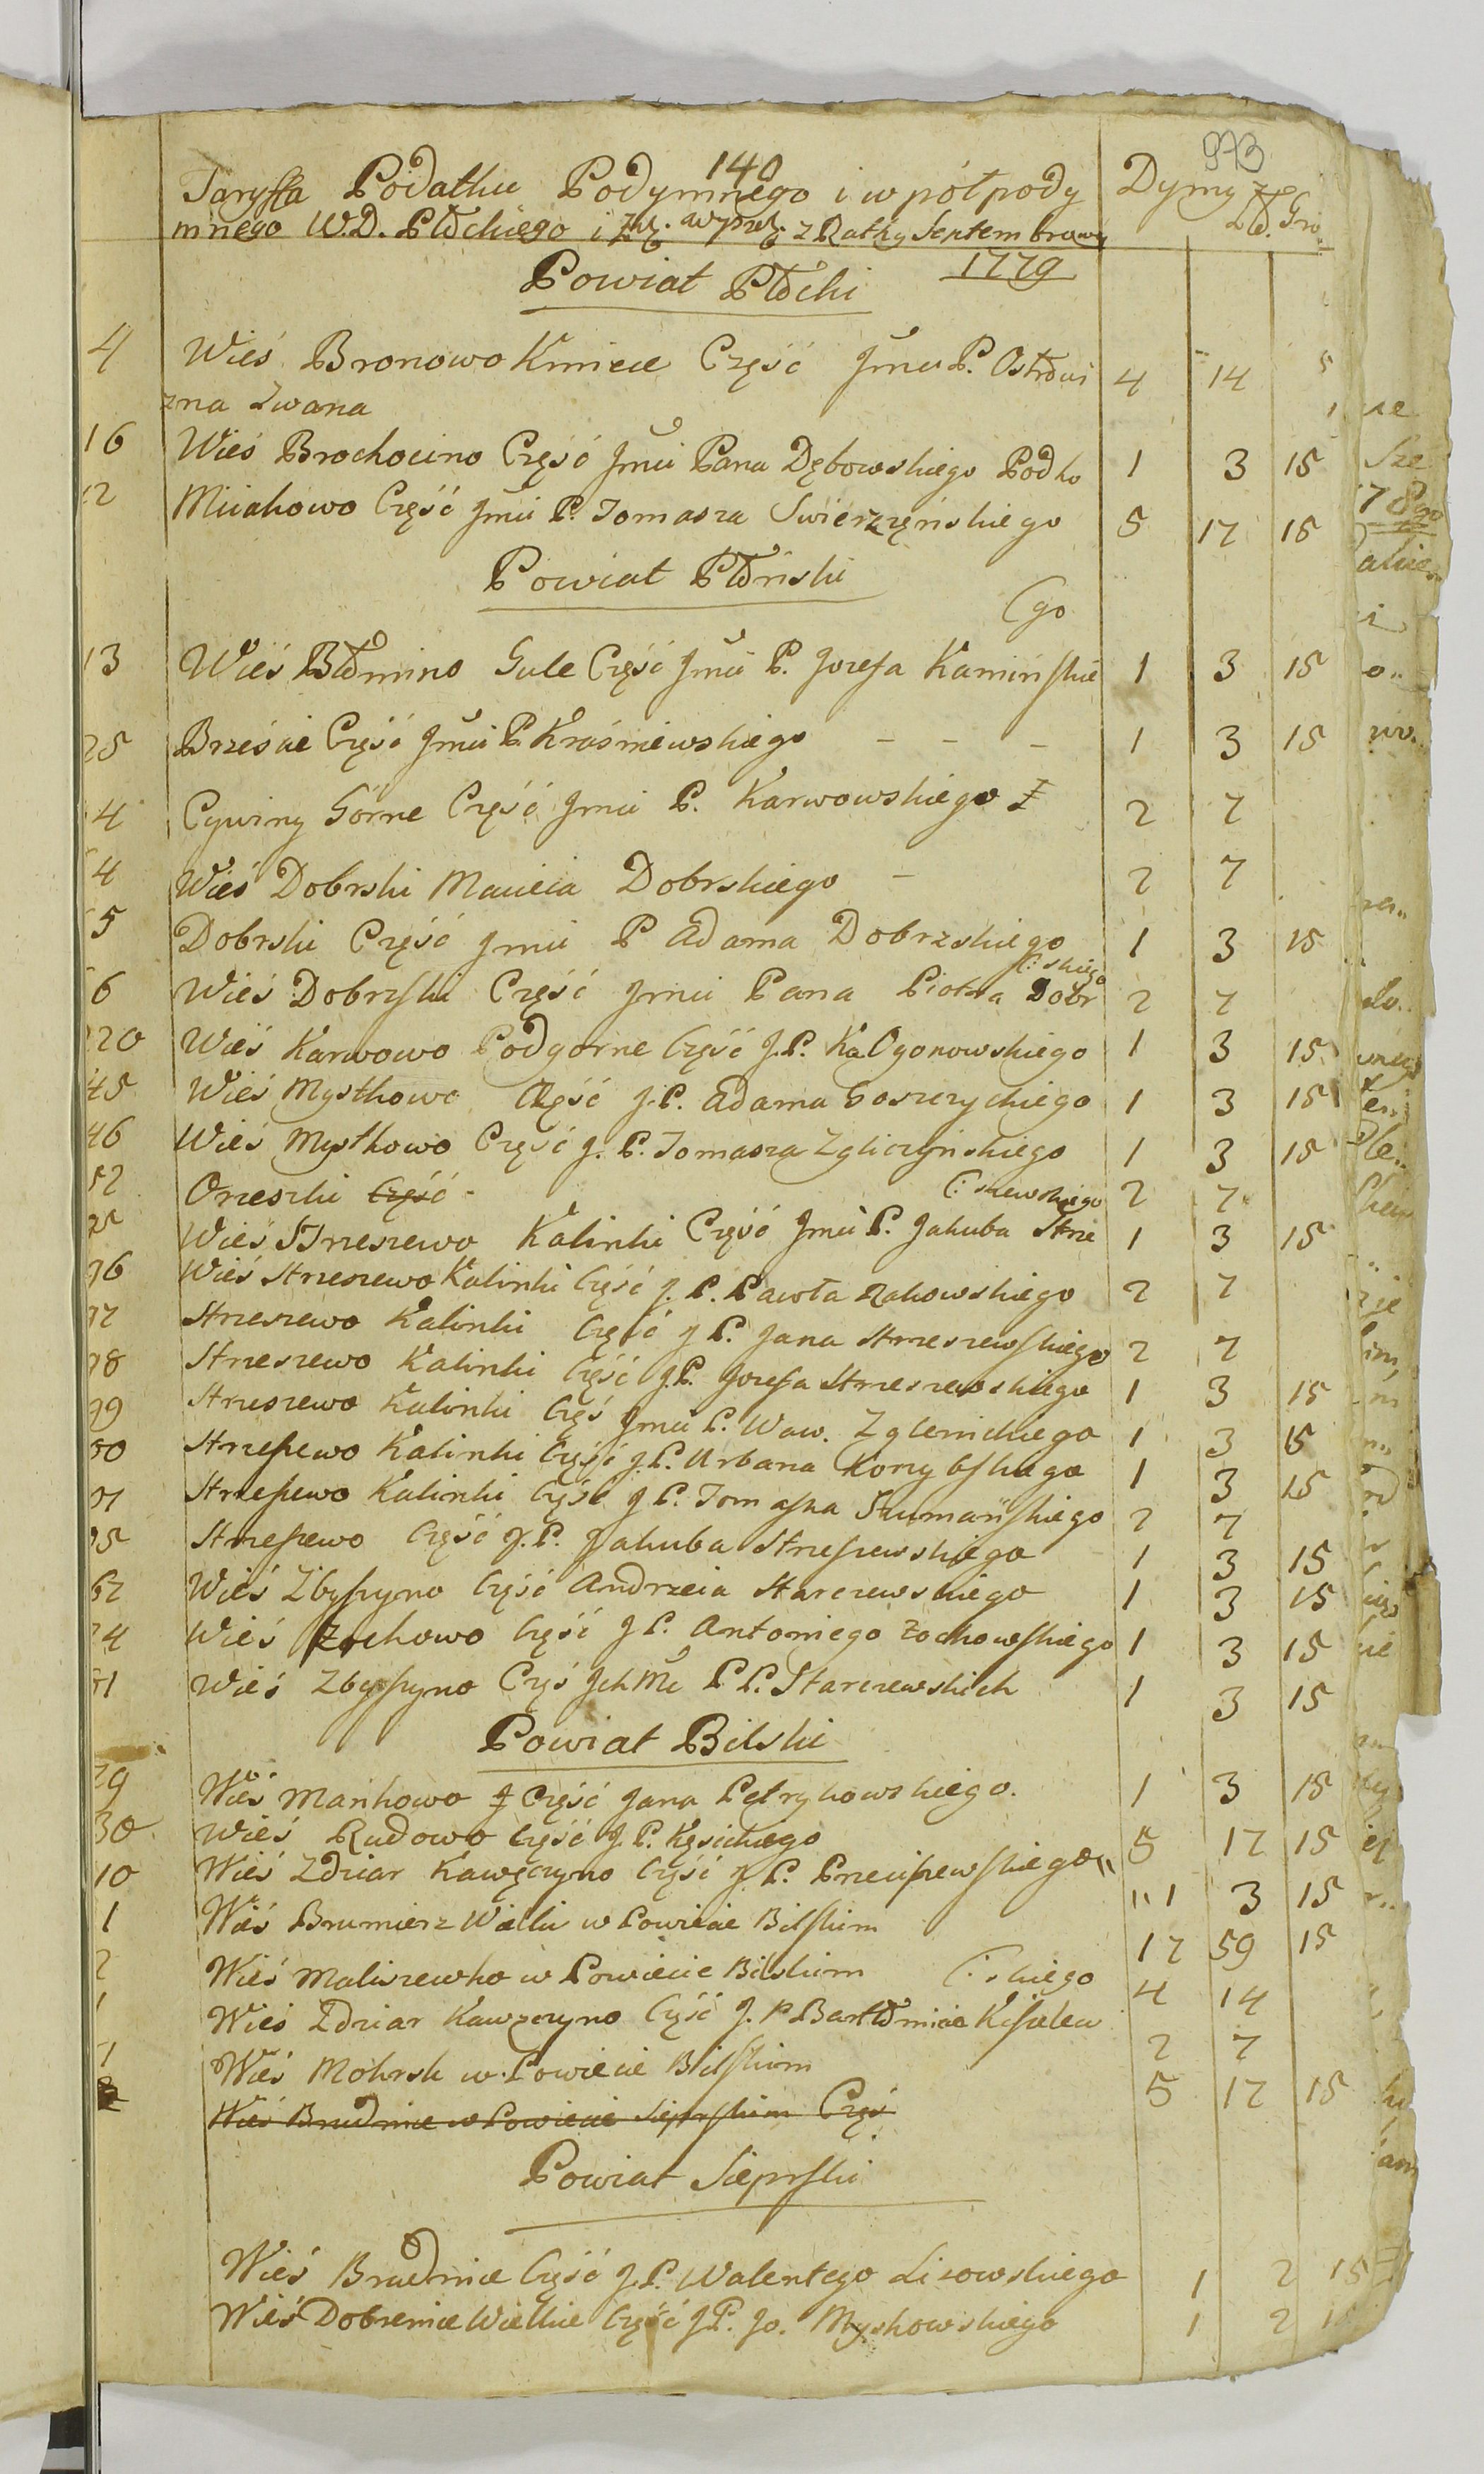 993
140
Taryffa Podatku Podymnego i wpółpody Dymy zł. Gro.
mnego W.D. Płockiego i z Ratky Septembrowy
1779
Powiat Płocki
4 Wieś Bronowo Kmiece Część Jmci P. Ostrowi 4 14
zna Zwana
16 Wieś Brochocino Część Jmci Pana Dębowskiego Podko 1 3 15
12 Część Jmci P. Tomasza Swierzęńskiego 5 17 15
Powiat Płoński
(go
13 Wieś Błomino Gule Część Jmci P. Jozefa Kamińskie 1 3 15
25 Brzeście Część Jmci P. Kraśniewskiego - - - 1 3 15
4 Cywiny Górne Część Jmci P. Karwowskiego 2 7
4 Wieś Dobrski Macieia Dobrskiego - 2 7
5 Dobrski Część Jmci P Adama Dobrzskiego 1 3 15
(: skiego
6 Wieś Dobrzski Część Jmci Pana Piotra Dobr 2 7
20 Wieś Karwowo Podgorne Część J.P. Ka. Ogonowskiego 1 3 15
45 Wieś Mystkowo Część J.P. Adama Goszczyckiego 1 3 15
46 Wieś Mystkowo Część J. P. Tomasza Zgliczyńskiego 1 3 15
52 Orzeszki Część - 2 7
(: szewskiego
95 Wieś Strzeszewo Kalinki Część Jmci P. Jakuba Strze 1 3 15
96 Wieś Strzeszewo Kalinki Część J. P. Pawła Rakowskiego 2 7
97 Strzeszewo Kalinki Część J P. Jana Strzeszewskiego 2 7
98 Strzeszewo Kalinki Część J.P. Jozefa Strzeszewskiego 1 3 15
99 Strzeszewo Kalinki Częś Jmci P. Waw. Zglenickiego 1 3 15
00 Strzeszewo Kalinki Część J.P. Urbana Korzybskiego 1 3 15
01 Strzeszewo Kalinki Część J P. Tomaszka Szumańskiego 2 7
95 Strzeszewo Część J.P. Jakuba Strzeszewskiego 1 3 15
62 Wieś Zbyszyno Część Andrzeia Starczewskiego 1 3 15
74 Wieś Zochowo Część J P. Antoniego Zochowskiego 1 3 15
61 Wieś Zbyszyno Częś Jch Mc PP. Starczewskich 1 3 15
Powiat Bilski
29 Wieś Mańkowo Część Jana Pętrykowskiego. 1 3 15
30 Wieś Rudowo Część J.P. Kęsickiego 5 17 15
10 Wieś Zdziar Kawęczyno Część J P. Przeciszewskiego 1 3 15
1 Wieś Brumierz Wielki w Powiecie Bilskim 17 59 15
2 Wieś Maliszewko w Powiecie Bilskim 4 14
(: skiego
1 Wieś Zdziar Kawęczyno Część J. P. Bartłomieia Kisielew 2 7
1 Wieś Mokrsk w Powiecie Bilskim 5 17 15
Wieś Brudnice w Powiecie Sieprskim Częś
Powiat Sieprski
Wieś Brudnice Część J.P. Walentego Lisowskiego 1 2 15
Wieś Dobrenice Wielkie Część J.P. Jo. Myskowskiego 1 2